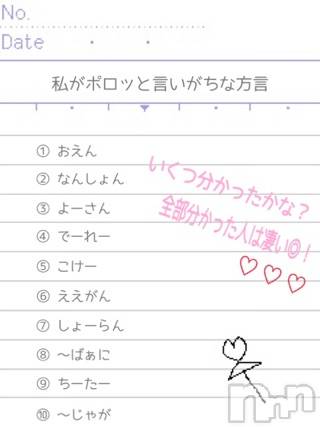 No.
Date
私がポロッと言いがちな方言
① おえん
② なんしょん
③ よーさん
④ でーれー
⑤ こけー
⑥ ええがん
⑦ しょーらん
⑧ 〜ばぁに
⑨ ちーたー
⑩ 〜じゃが
いくつ分かったかな？
全部分かった人は凄い◎！